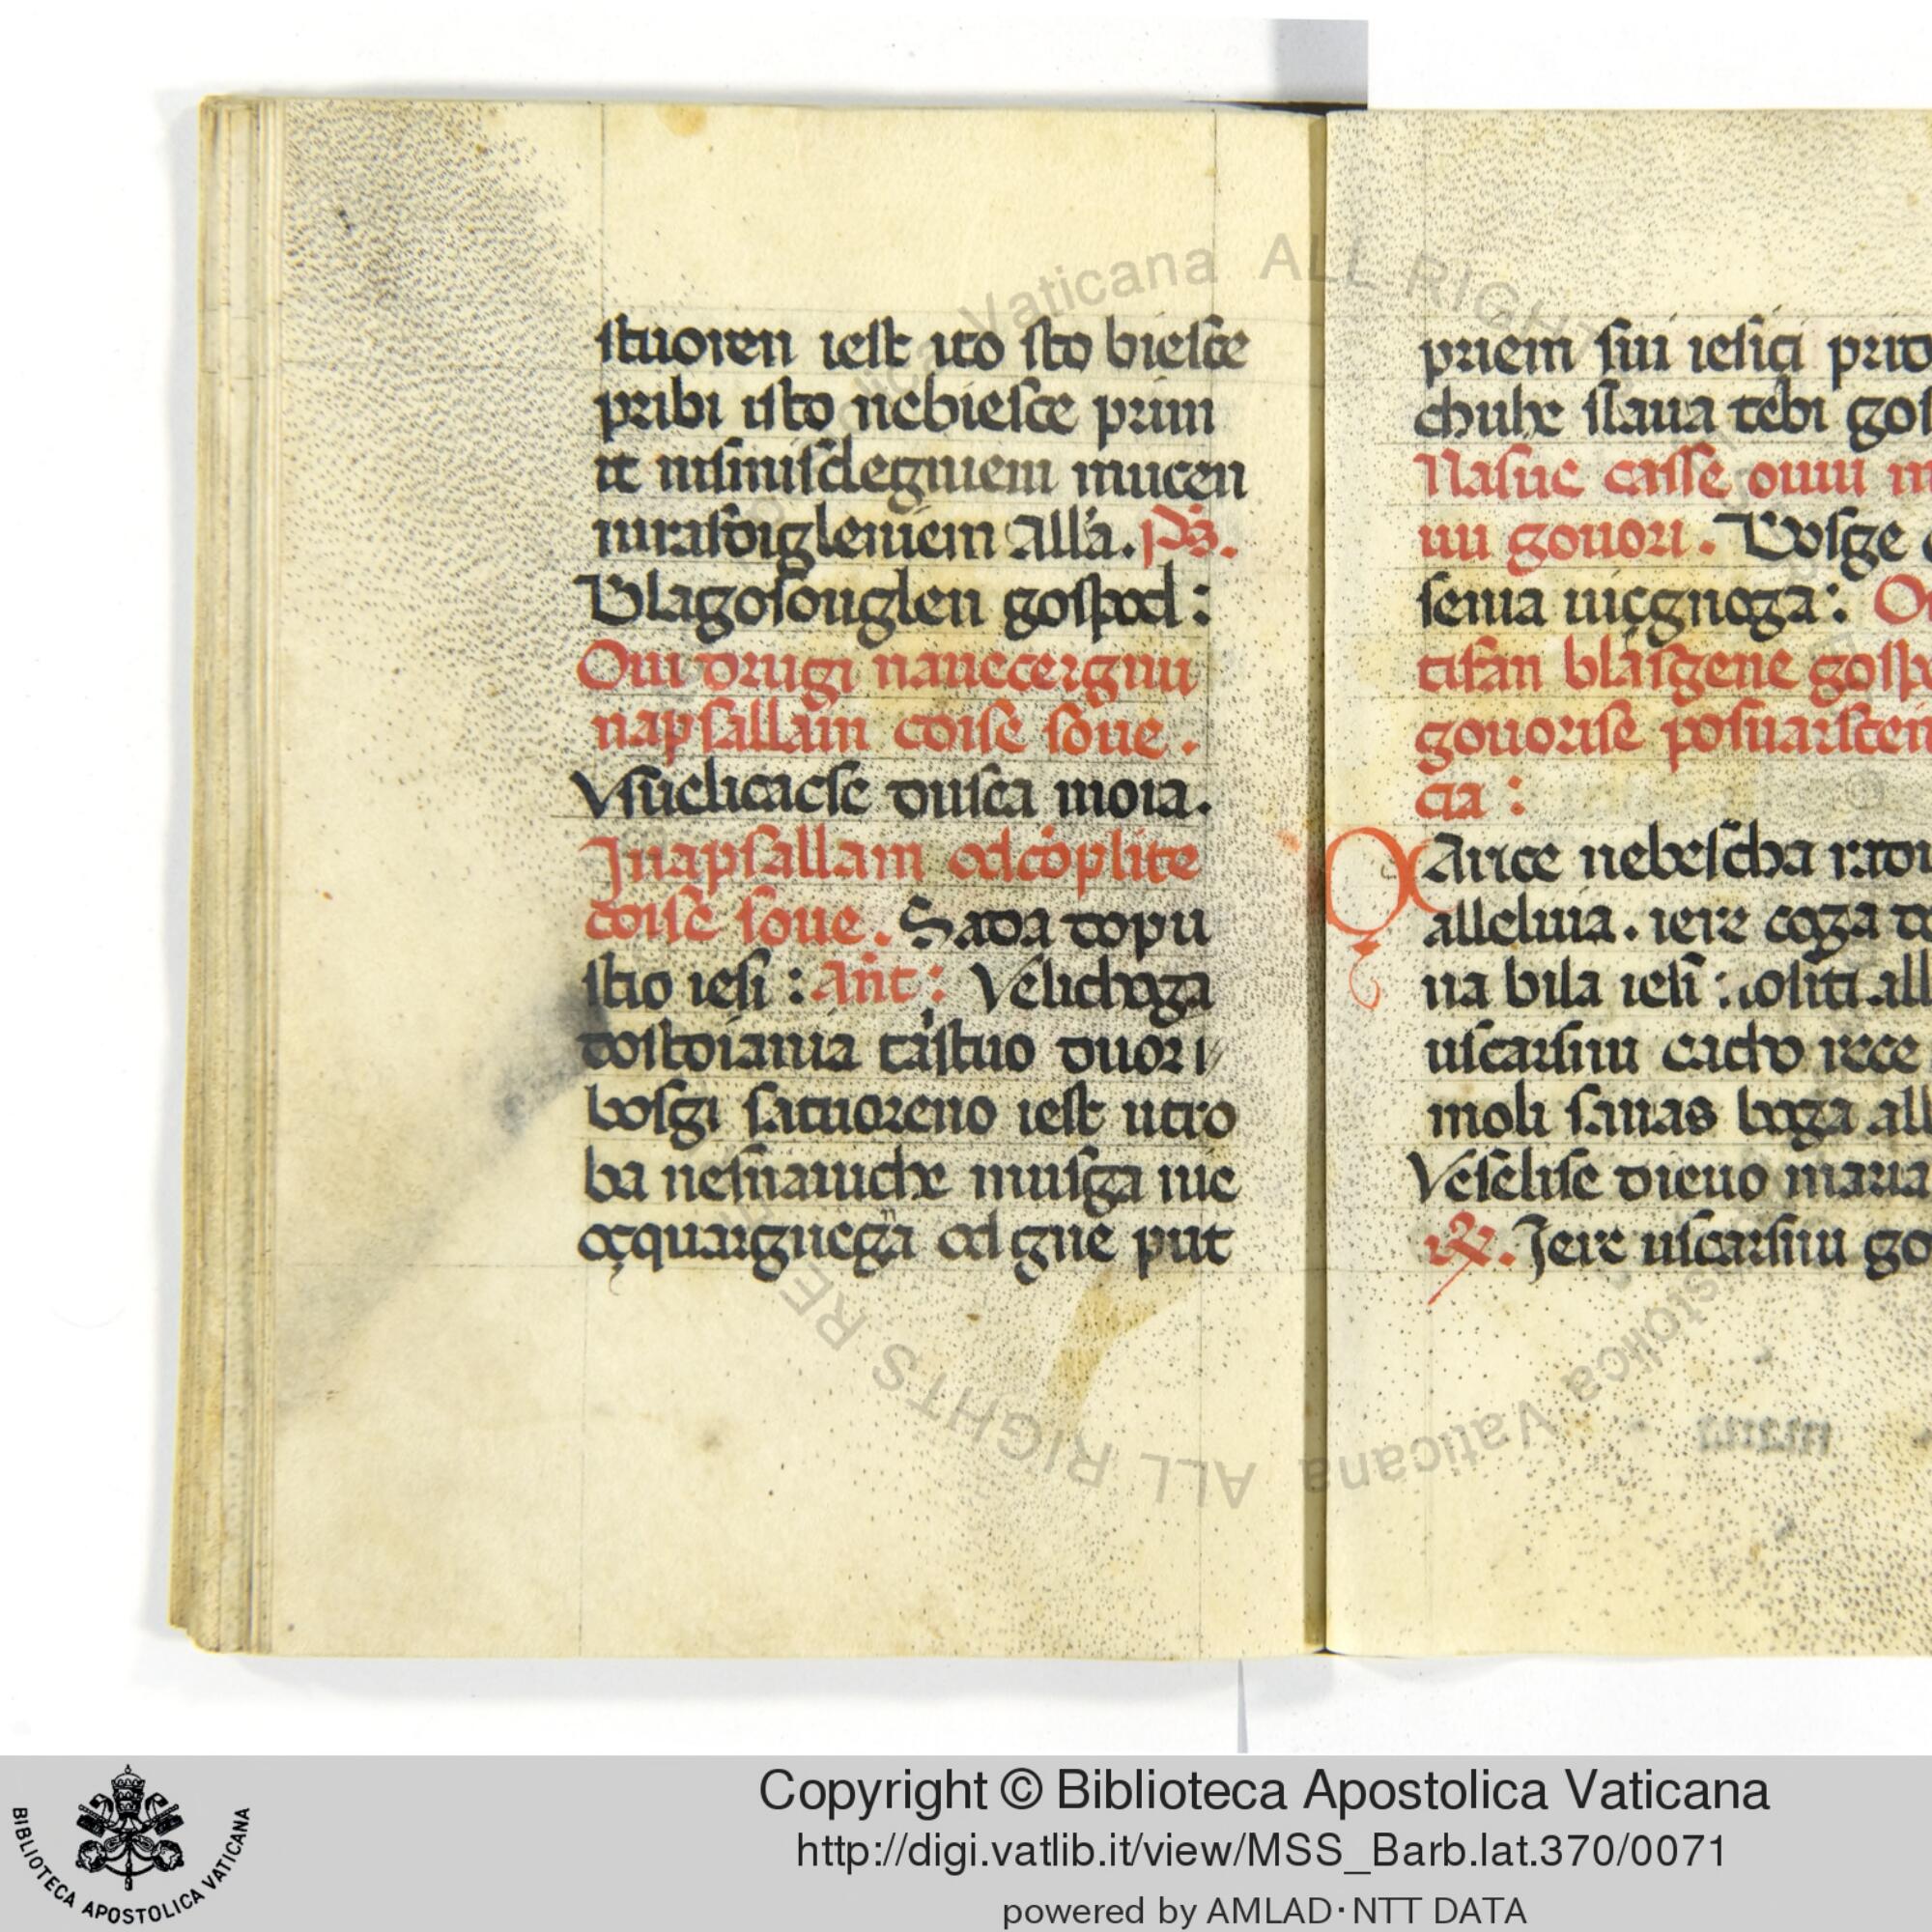 stuoren iest uto sto bieste
pribi isto nebiesce prim
it nisinisdegniem mucen
niraſoigleniem Alľa. Ps.
Blagosouglen gospod:
Oui drugi nauecergnu
napsallam doise soue.
Vsuelicacse duisca moia.
Inapsallam odcoplite
doise soue. Sada dopu
stio iesi: Ant: Velichoga
dostoiania taistuo duor i
bosgi satuoreno iest utro
ba nesnauiche muisga nie
oçquargnega od gne put
priem sui iesiçi
chuhe slaua tebi
Nasuc casse ouu
uu gouori. Bosge
senia niçgnoga:
tisan blaisgene
gouorise posuarsten
cia:
Anice nebescha
alleluia. iere coga
na bila iesi: nositi
uscarsnu cacho rece
moli sanas boga
Veselise dieuo
℟. Iere uscarsnu
Copyright © Biblioteca Apostolica Vaticana
http://digi.vatlib.it/view/MSS_Barb.lat.370/0071
powered by AMLAD·NTT DATA
BIBLIOTECA APOSTOLICA VATICANA